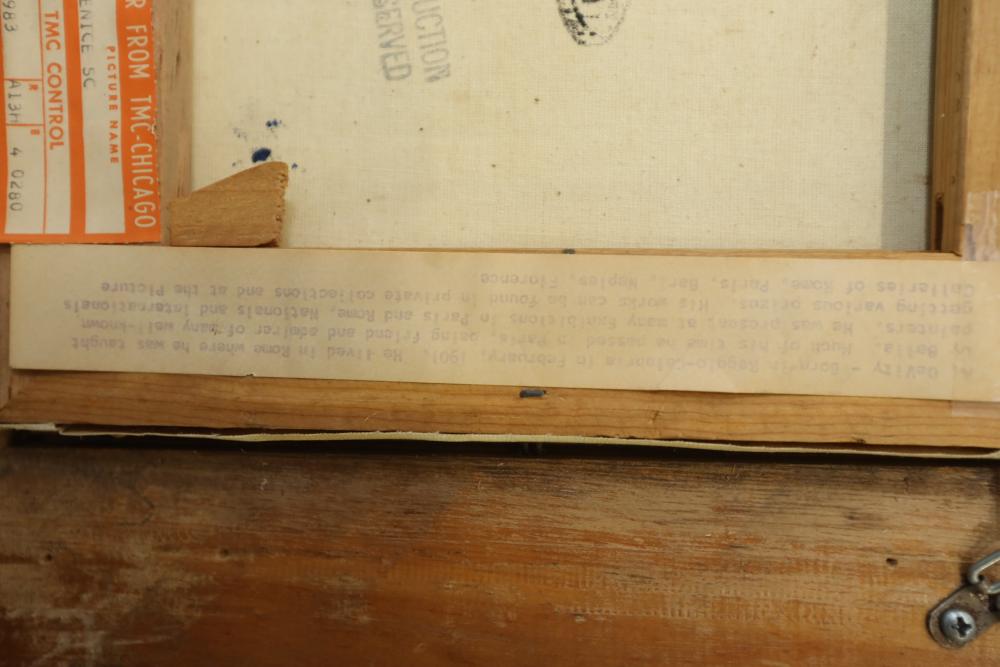 R FROM TMC-CHICAGO
PICTURE NAME
ENICE SC
TMC CONTROL
R
E
983 A13H 4 0280
UCTION
SERVED
DeVity - Born in Reggio-Calabria in February, 1901. He lived in Rome where he was taught
by Balla. Much of his time he passed in Paris, being friend and admirer of many well-known
painters. He was present at many Exhibitions in Paris and Rome, Nationals and Internationals
getting various prizes. His works can be found in private collections and at the Picture
Galleries of Rome, Paris, Bari, Naples, Florence.